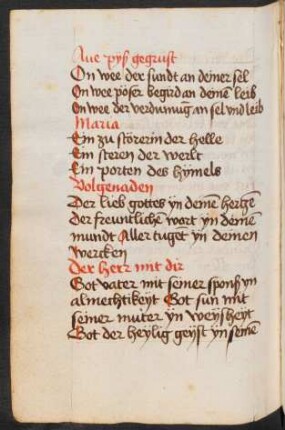 Aue pyß gegrust
On wee der sundt an deiner sel
On wee pöser begird an deinē leib
On wee der verdumūg an sel vnd leib
Maria
Ein zu störerin der helle
Ein steren der werlt
Ein porten des hymels
Volgenaden
Der lieb gottes yn deinē hertzen
der freuntlichē wort yn deinē
mundt Aller tuget yn deinen
wercken
Der herr mit dir
Got vater mit seiner sponß yn
almechtikeyt Got sun mit
seiner muter yn weyßheyt
Got der heylig geyst yn seinē